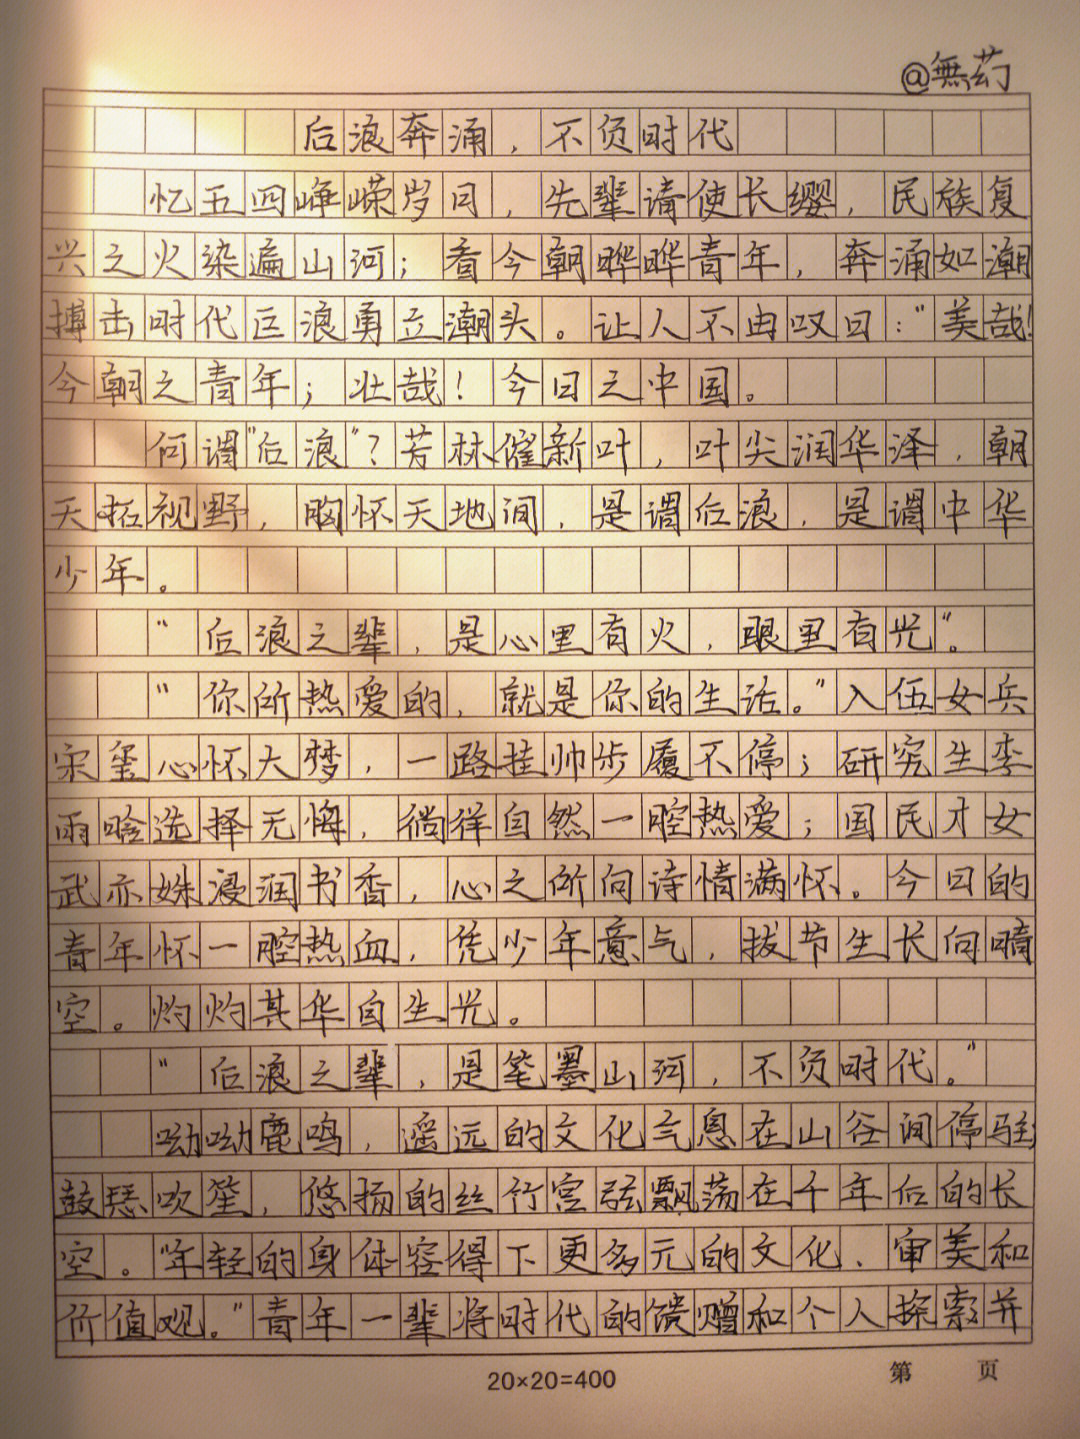 @無药
后浪奔涌，不负时代
忆五四峥嵘岁月，先辈请使长缨，民族复
兴之火染遍山河；看今朝晔晔青年，奔涌如潮
搏击时代巨浪勇立潮头。让人不由叹曰：“美哉！
今朝之青年；壮哉！今日之中国。
何谓“后浪”？芳林催新叶，叶尖润华泽，朝
天拓视野，胸怀天地间，是谓后浪，是谓中华
少年。
“后浪之辈，是心里有火，眼里有光”。
“你所热爱的，就是你的生活。”入伍女兵
宋玺心怀大梦，一路挂帅步履不停；研究生李
雨晗选择无悔，徜徉自然一腔热爱；国民才女
武亦姝浸润书香，心之所向诗情满怀。今日的
青年怀一腔热血，凭少年意气，拔节生长向晴
空。灼灼其华自生光。
“后浪之辈，是笔墨山河，不负时代。”
呦呦鹿鸣，遥远的文化气息在山谷间停驻
鼓瑟吹笙，悠扬的丝竹宫弦飘荡在千年后的长
空。“年轻的身体容得下更多元的文化、审美和
价值观。”青年一辈将时代的馈赠和个人探索并
20×20=400
第 页